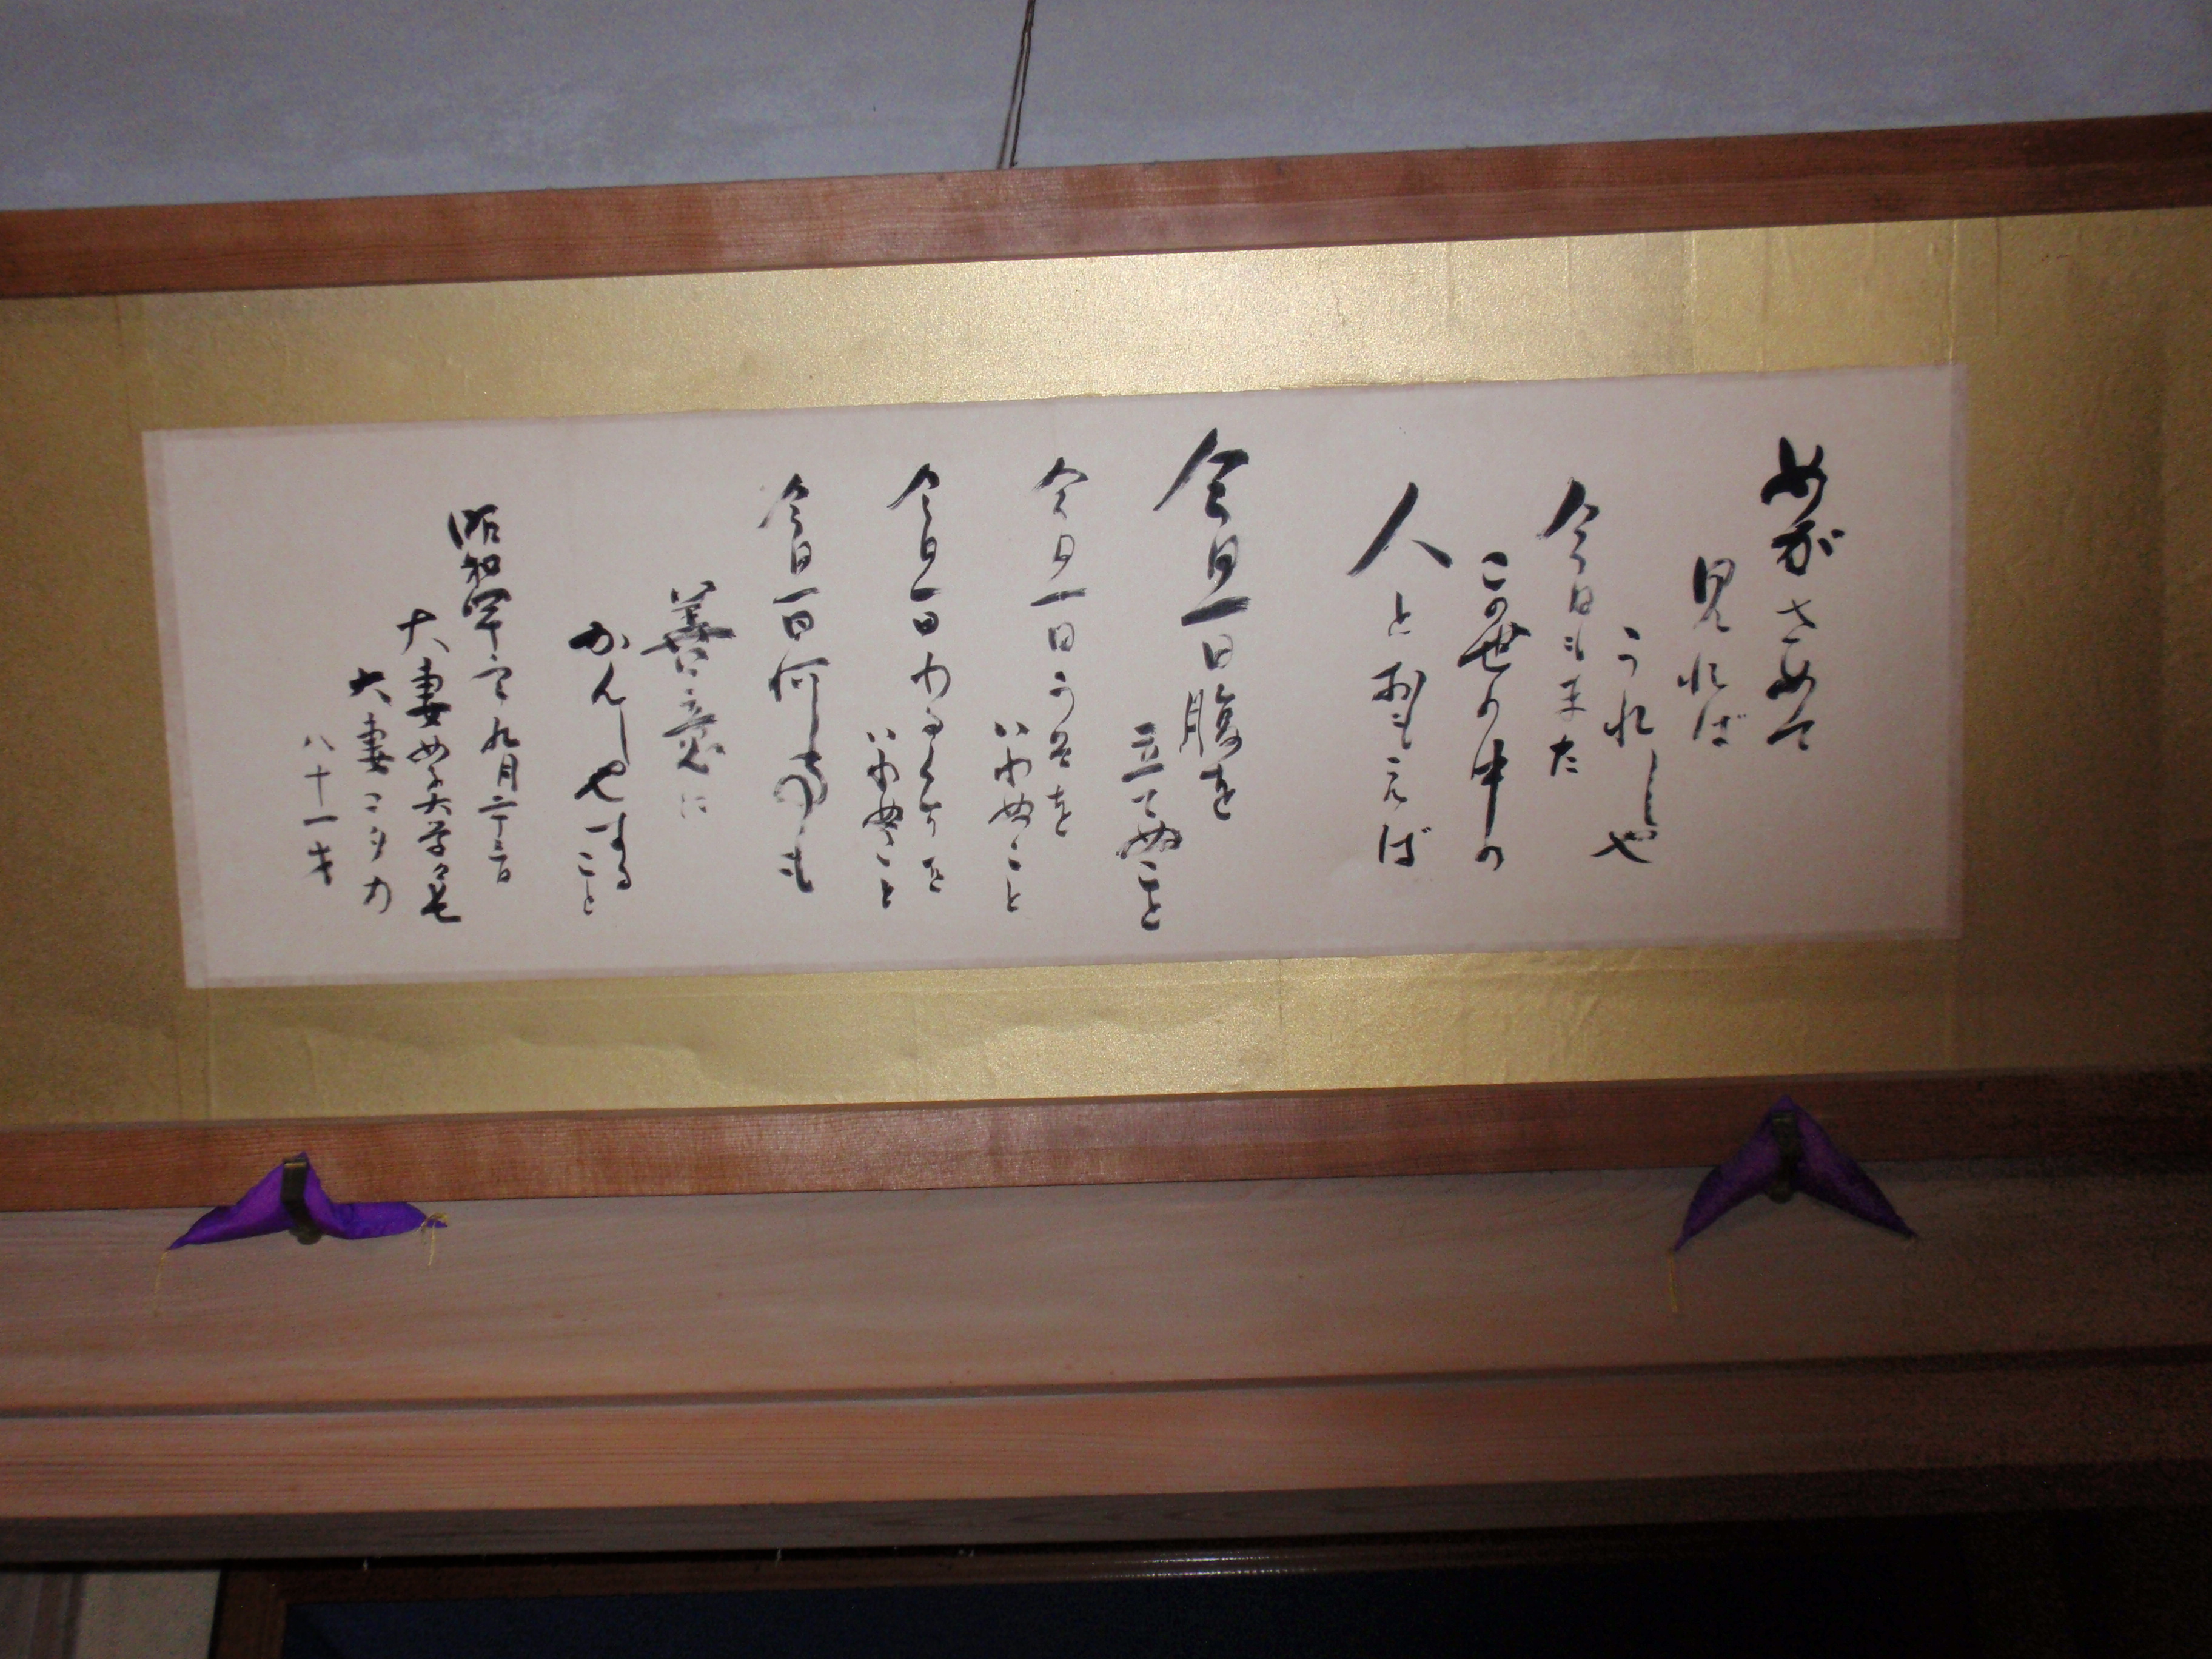 めがさめて
見れば
うれしや
今日もまた
この世の中の
人とおもえば
今日一日腹を
立てぬこと
今日一日うそを
いわぬこと
今日一日わるくちを
いわぬこと
今日一日何事も
善意に
かんしやする
こと
昭和
九月二十三日
大妻女子大学々長
大妻コタカ
八十一才